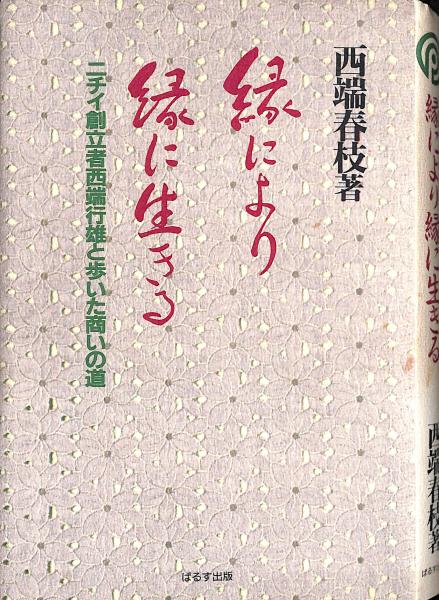 西端春枝著
縁により
縁に生きる
ニチイ創立者西端行雄と歩いた商いの道
ぱるす出版
縁により縁に生きる
西端春枝著
ぱるす